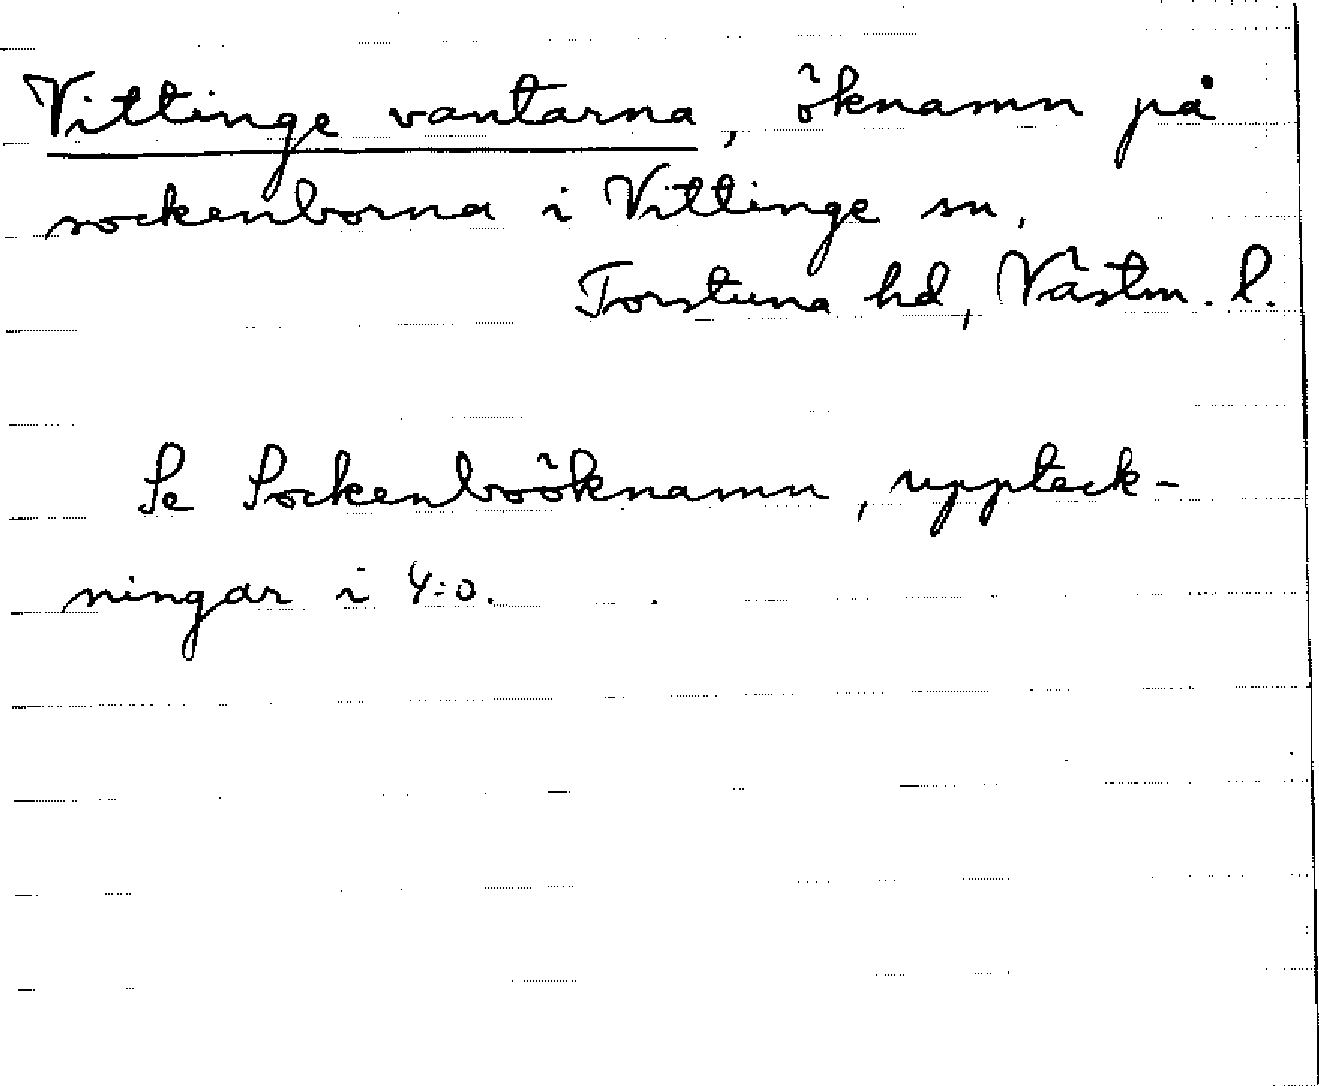 Vittinge vantarna, öknamn på
sockenborna i Vittinge sn,
Torstuna hd, Västm. l.
Se Sockenboöknamn, uppteck-
ningar i 4:o.